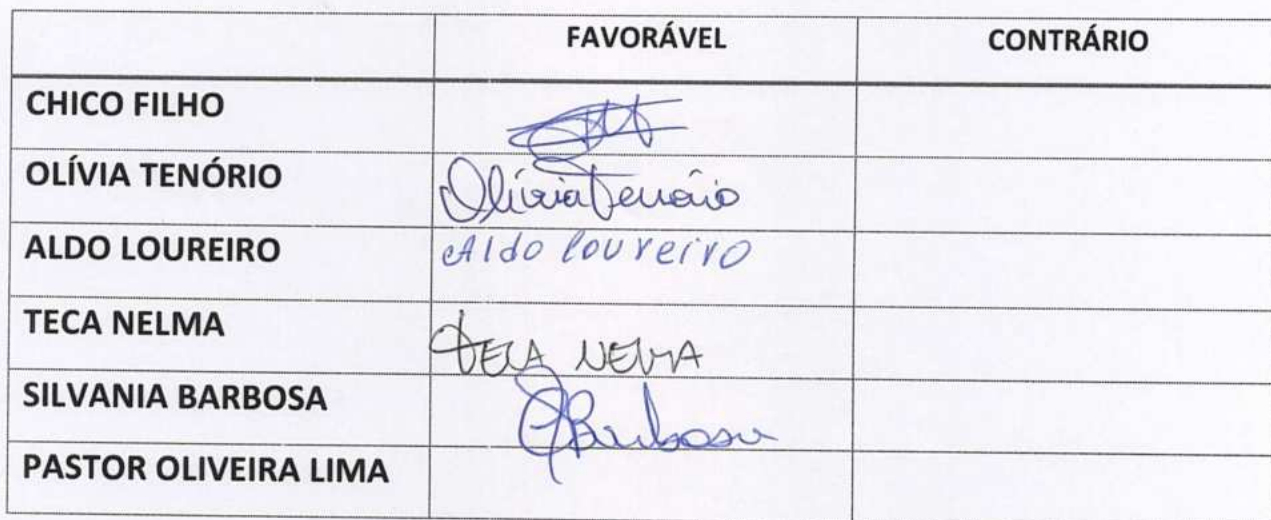 FAVORÁVEL CONTRÁRIO
CHICO FILHO
OLÍVIA TENÓRIO Olívia Tenório
ALDO LOUREIRO Aldo loureiro
TECA NELMA TECA NELMA
SILVANIA BARBOSA Barbosa
PASTOR OLIVEIRA LIMA